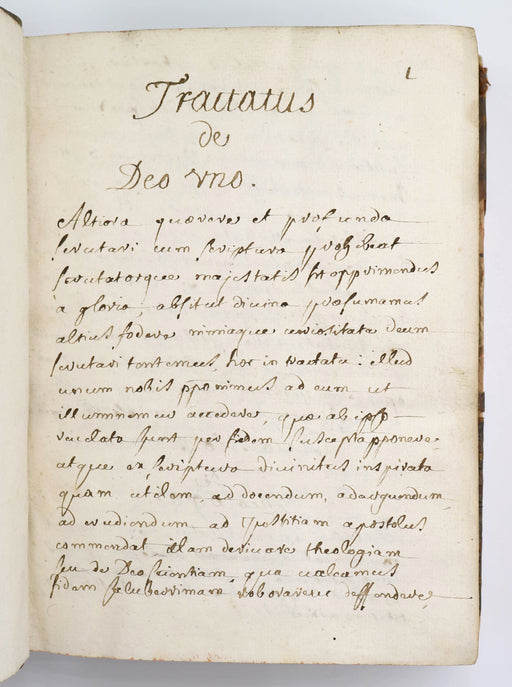 1
Tractatus
de
Deo vno.
Altiora quærere et profunda
scrutari cum scriptura prohibeat
scrutatorque majestatis sit opprimendus
à gloria, absit ut divina
altius fodere nimiaque curiositate deum
scrutari tentemus, hoc in tractatu: illud
unum nobis pponimus ad eum ut
illuminemur accedere, quæ ab ipso
revelata sunt per fidem suscepta pponere
atque ex scriptura divinitus inspirata
quam utilem, ad docendum, ad arguendum,
ad erudiendum ad apostolus
commendat illam derivare theologiam
seu de Deo scientiam, qua valeamus
fidem saluberrimam roborare et deffendere